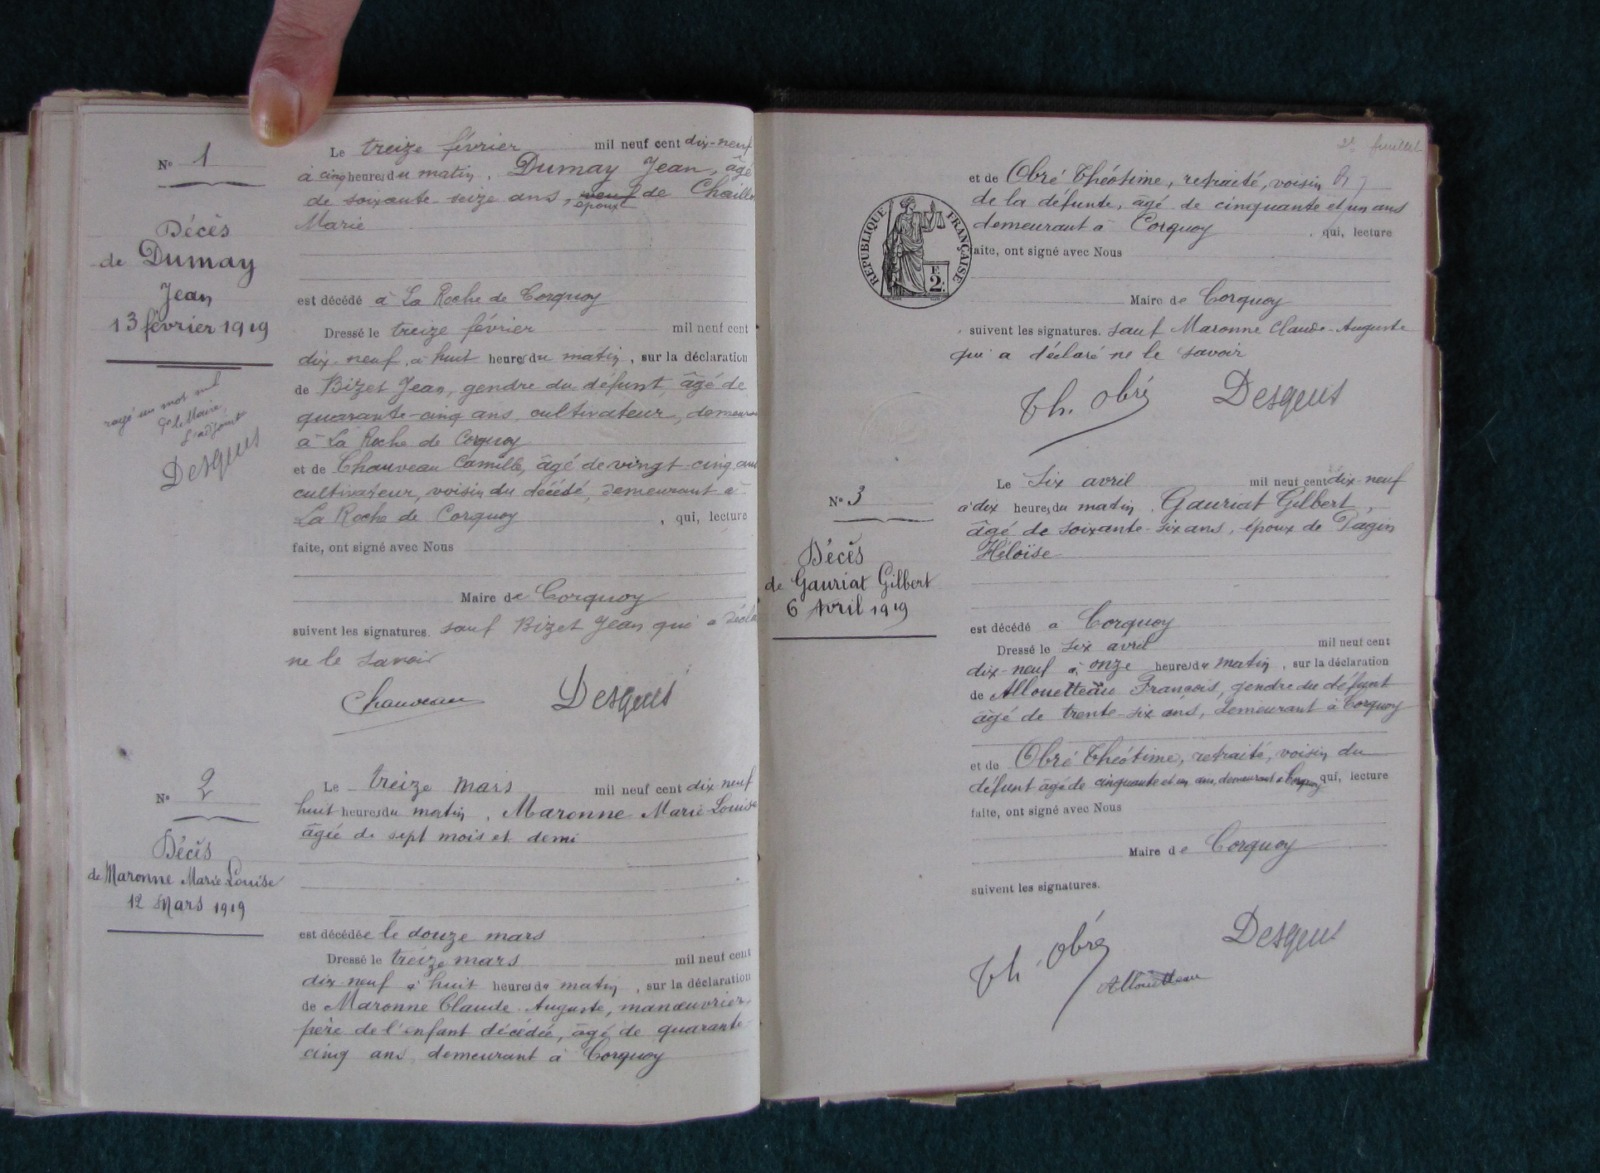 N° 1
Décès
de Dumay
Jean
13 février 1919
rayé un mot nul
P. le Maire
L'adjoint
Desgues
Le treize février mil neuf cent dix-neuf
à cinq heures du matin, Dumay Jean, âgé
de soixante-seize ans, veuf de
époux
Marie
est décédé à La Roche de Corquoy
Dressé le treize février mil neuf cent
dix-neuf, à huit heures du matin, sur la déclaration
de Bizet Jean, gendre du défunt, âgé de
quarante-cinq ans, cultivateur,
à La Roche de Corquoy
et de Chauveau Camille, âgé de vingt-cinq ans
cultivateur, voisin du décédé, demeurant à
La Roche de Corquoy, qui, lecture
faite, ont signé avec Nous
Maire de Corquoy
suivent les signatures. sauf Bizet Jean qui a
ne le savoir
Chauveau Desgues
N° 2
Décès
de Maronne Marie Louise
12 Mars 1919
Le treize mars mil neuf cent dix neuf
huit heures du matin, Maronne Marie Louise
âgée de sept mois et demi
est décédée le douze mars
Dressé le treize mars mil neuf cent
dix neuf à huit heures du matin, sur la déclaration
de Maronne Claude-Auguste, manœuvrier,
père de l'enfant décédée, âgé de quarante-
cinq ans, demeurant à Corquoy
2e feuillet
RÉPUBLIQUE FRANÇAISE
F.
2.
et de Obré Théotime, retraité, voisin
de la défunte, âgé de cinquante et un ans
demeurant à Corquoy, qui, lecture
faite, ont signé avec Nous
Maire de Corquoy
suivent les signatures. sauf Maronne Claude-Auguste
qui a déclaré ne le savoir
Th. Obré Desgues
N° 3
Décès
de Gauriat Gilbert
6 Avril 1919
Le six avril mil neuf cent dix-neuf
à dix heures du matin, Gauriat Gilbert,
âgé de soixante-six ans, époux de Pagin
Héloïse
est décédé à Corquoy
Dressé le six avril mil neuf cent
dix-neuf à onze heures du matin, sur la déclaration
de Allouetteau François, gendre du défunt
âgé de trente-six ans, demeurant à Corquoy
et de Obré Théotime, retraité, voisin du
défunt âgé de cinquante et un ans, demeurant à Corquoy qui, lecture
faite, ont signé avec Nous
Maire de Corquoy
suivent les signatures.
Th. Obré Desgues
Allouetteau